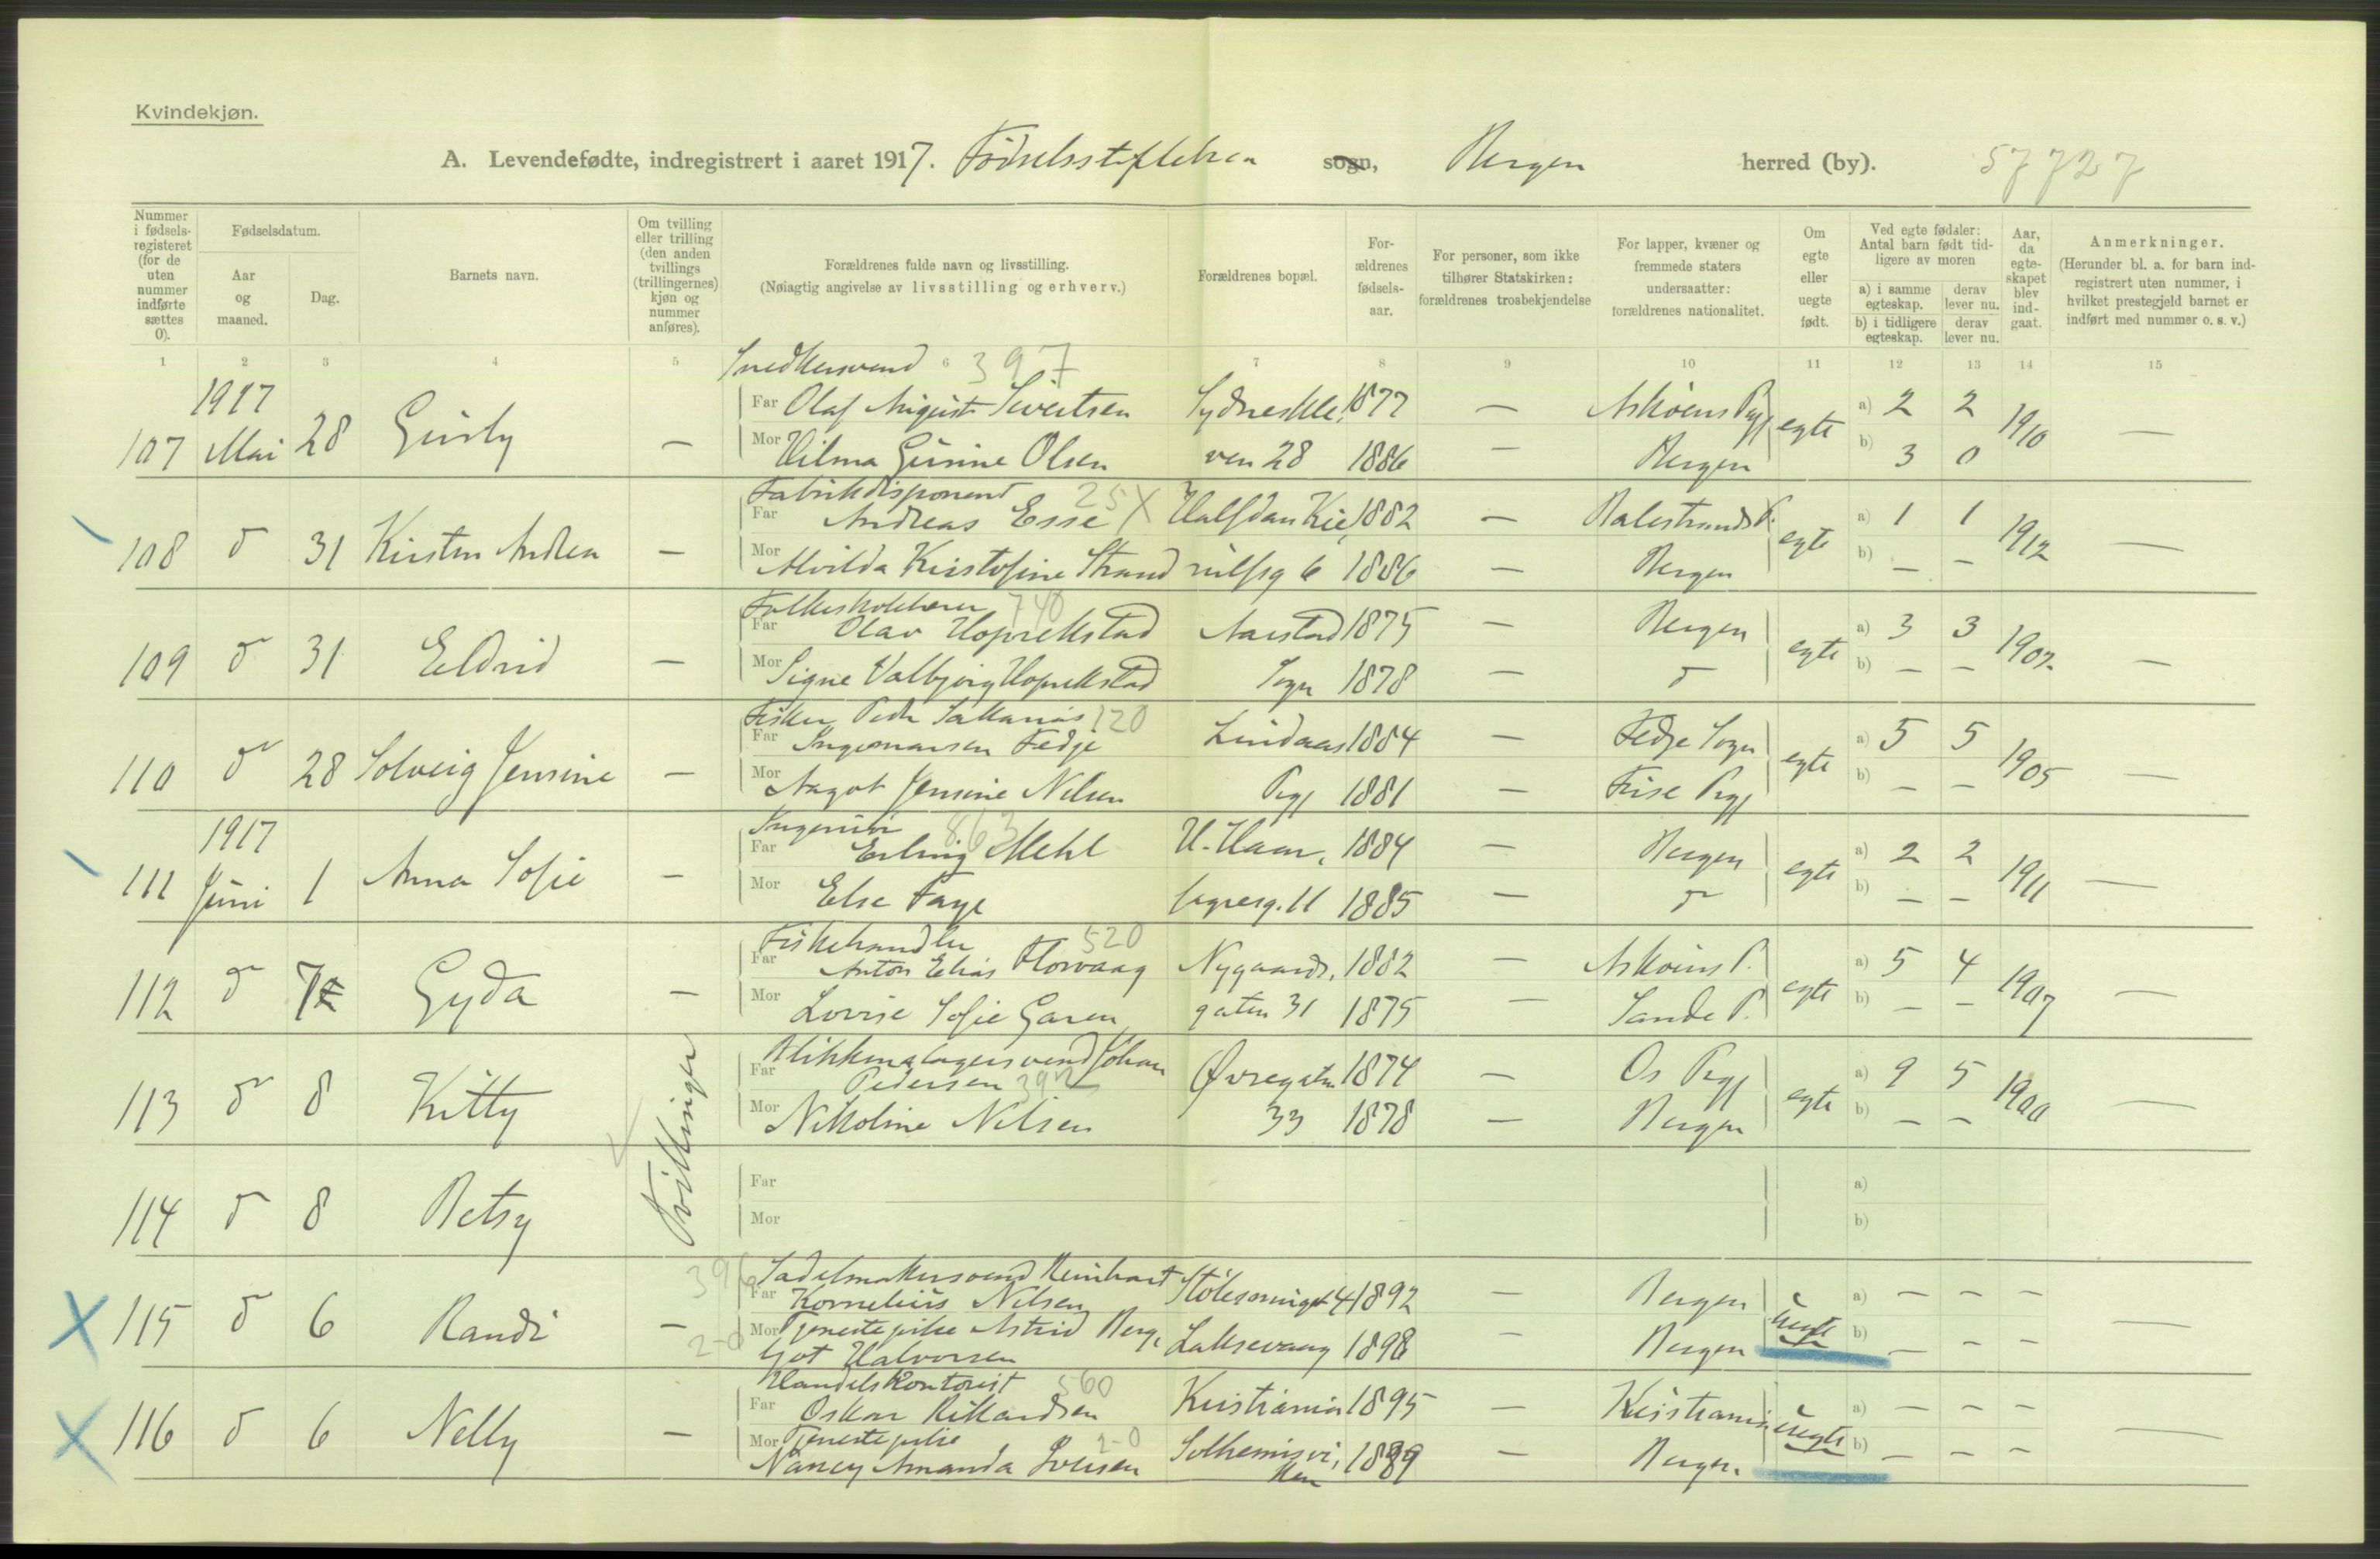 Kvindekjøn.
A. Levendefødte, indregistrert i aaret 1917. Fødselsstiftelsen sogn, Bergen herred (by). 57727
Nummer i fødsels-registeret (for de uten nummer indførte sættes 0).
Fødselsdatum.
Aar og maaned.
Dag.
Barnets navn.
Om tvilling eller trilling (den anden tvillings (trillingernes) kjøn og nummer anføres).
Forældrenes fulde navn og livsstilling.
(Nøiagtig angivelse av livsstilling og erhverv.)
Forældrenes bopæl.
For-ældrenes fødsels-aar.
For personer, som ikke tilhører Statskirken: forældrenes trosbekjendelse
For lapper, kvæner og fremmede staters undersaatter: forældrenes nationalitet.
Om egte eller uegte født.
Ved egte fødsler: Antal barn født tid-ligere av moren
a) i samme egteskap. derav lever nu.
b) i tidligere egteskap. derav lever nu.
Aar, da egte-skapet blev ind-gaat.
Anmerkninger.
(Herunder bl. a. for barn ind-registrert uten nummer, i hvilket prestegjeld barnet er indført med nummer o. s. v.)
1 2 3 4 5 6 7 8 9 10 11 12 13 14 15
Snedkersvend 397
1917 Far Olaf August Sivertsen Sydneskle, 1877 — Askøens Pgj a) 2 2
107 Mai 28 — egte 1910 —
Mor Vilma Gurine Olsen ven 28 1886 — Bergen b) 3 0
Fabrikdisponent 25 X
Far Andreas Esse Halfdan Kie, 1882 — Balestrands P. a) 1 1
108 d 31 Kirsten Andrea — egte 1912 —
Mor Alvilda Kristofine Strand rulfsg 6 1886 — Bergen b) — —
Folkeskolelærer 740
Far Olav Hoprekstad Aarstad 1875 — Bergen a) 3 3
109 d 31 Eldrid — egte 1902 —
Mor Signe Valbjørg Hoprekstad Sogn 1878 — d b) — —
Fisker Peder Sakarias 120
Far Ingemansen Fedje Lindaas 1884 — Fedje Sogn a) 5 5
110 d 28 Solveig Jensine — egte 1905 —
Mor Aagot Jensine Nilsen Pgj 1881 — Pgj b) — —
Ingeniør 863
1917 Far Erling Mehl H. Haar, 1884 — Bergen a) 2 2
111 Juni 1 Anna Sofie — egte 1911 —
Mor Else Faye fagresg. 11 1885 — d b) — —
Fiskehandler 520
Far Anton Elias Florvaag Nygaards, 1882 — Askøens P. a) 5 4
112 d 7 Gyda — egte 1907 —
Mor Lovise Sofie Garen gaten 31 1875 — Sande P. b) — —
Blikkenslagersvend Johan
Far Pedersen 392 Øvregaten 1874 — Os Pgj a) 9 5
113 d 8 Kitty Tvillinger egte 1900 —
Mor Nikoline Nilsen 33 1878 — Bergen b) — —
Far a)
114 d 8 Betsy
Mor b)
396 Sadelmakersvend Reinhart
Far Kornelius Nilsen Stølesmuget 4 1892 — Bergen a) — — —
115 d 6 Randi — uegte —
2-0 Mor Tjenestepike Astrid Berg, Laksevaag 1898 — Bergen b) — — —
ljot Halvorsen
Handelskontorist 560
Far Oskar Rikardsen Kristiania 1895 — Kristiania a) — — —
116 d 6 Nelly — uegte —
Mor Tjenestepike 2-0 Solheimsvi,
Nancy Amanda Iversen ken 1889 — Bergen. b) — — —